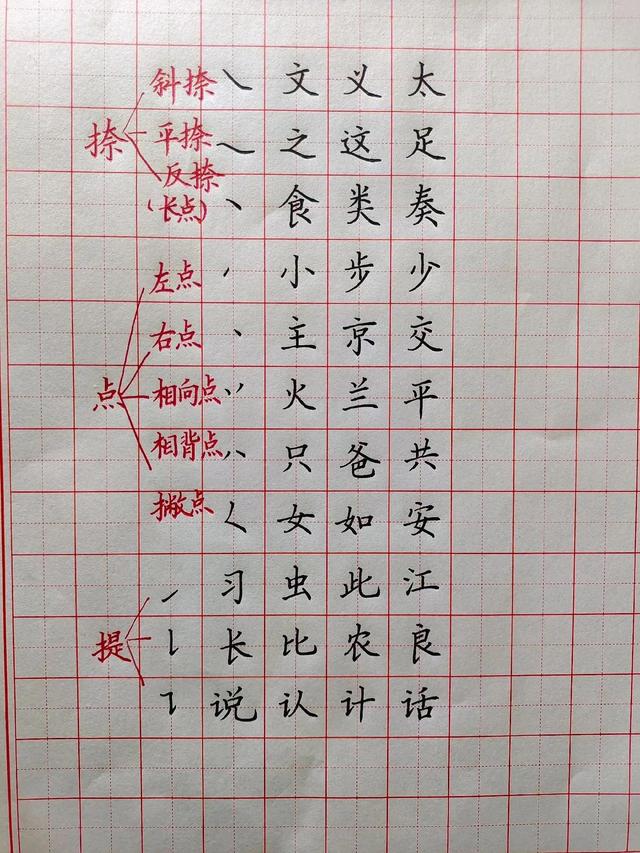 斜捺 ㇏ 文 义 太
捺 平捺 ㇏ 之 这 足
反捺
(长点) 丶 食 类 奏
左点 小 步 少
右点 丶 主 京 交
点 相向点 丷 火 兰 平
相背点 八 只 爸 共
撇点 ㇛ 女 如 安
㇀ 习 虫 此 江
提 𠄌 长 比 农 良
㇊ 说 认 计 话